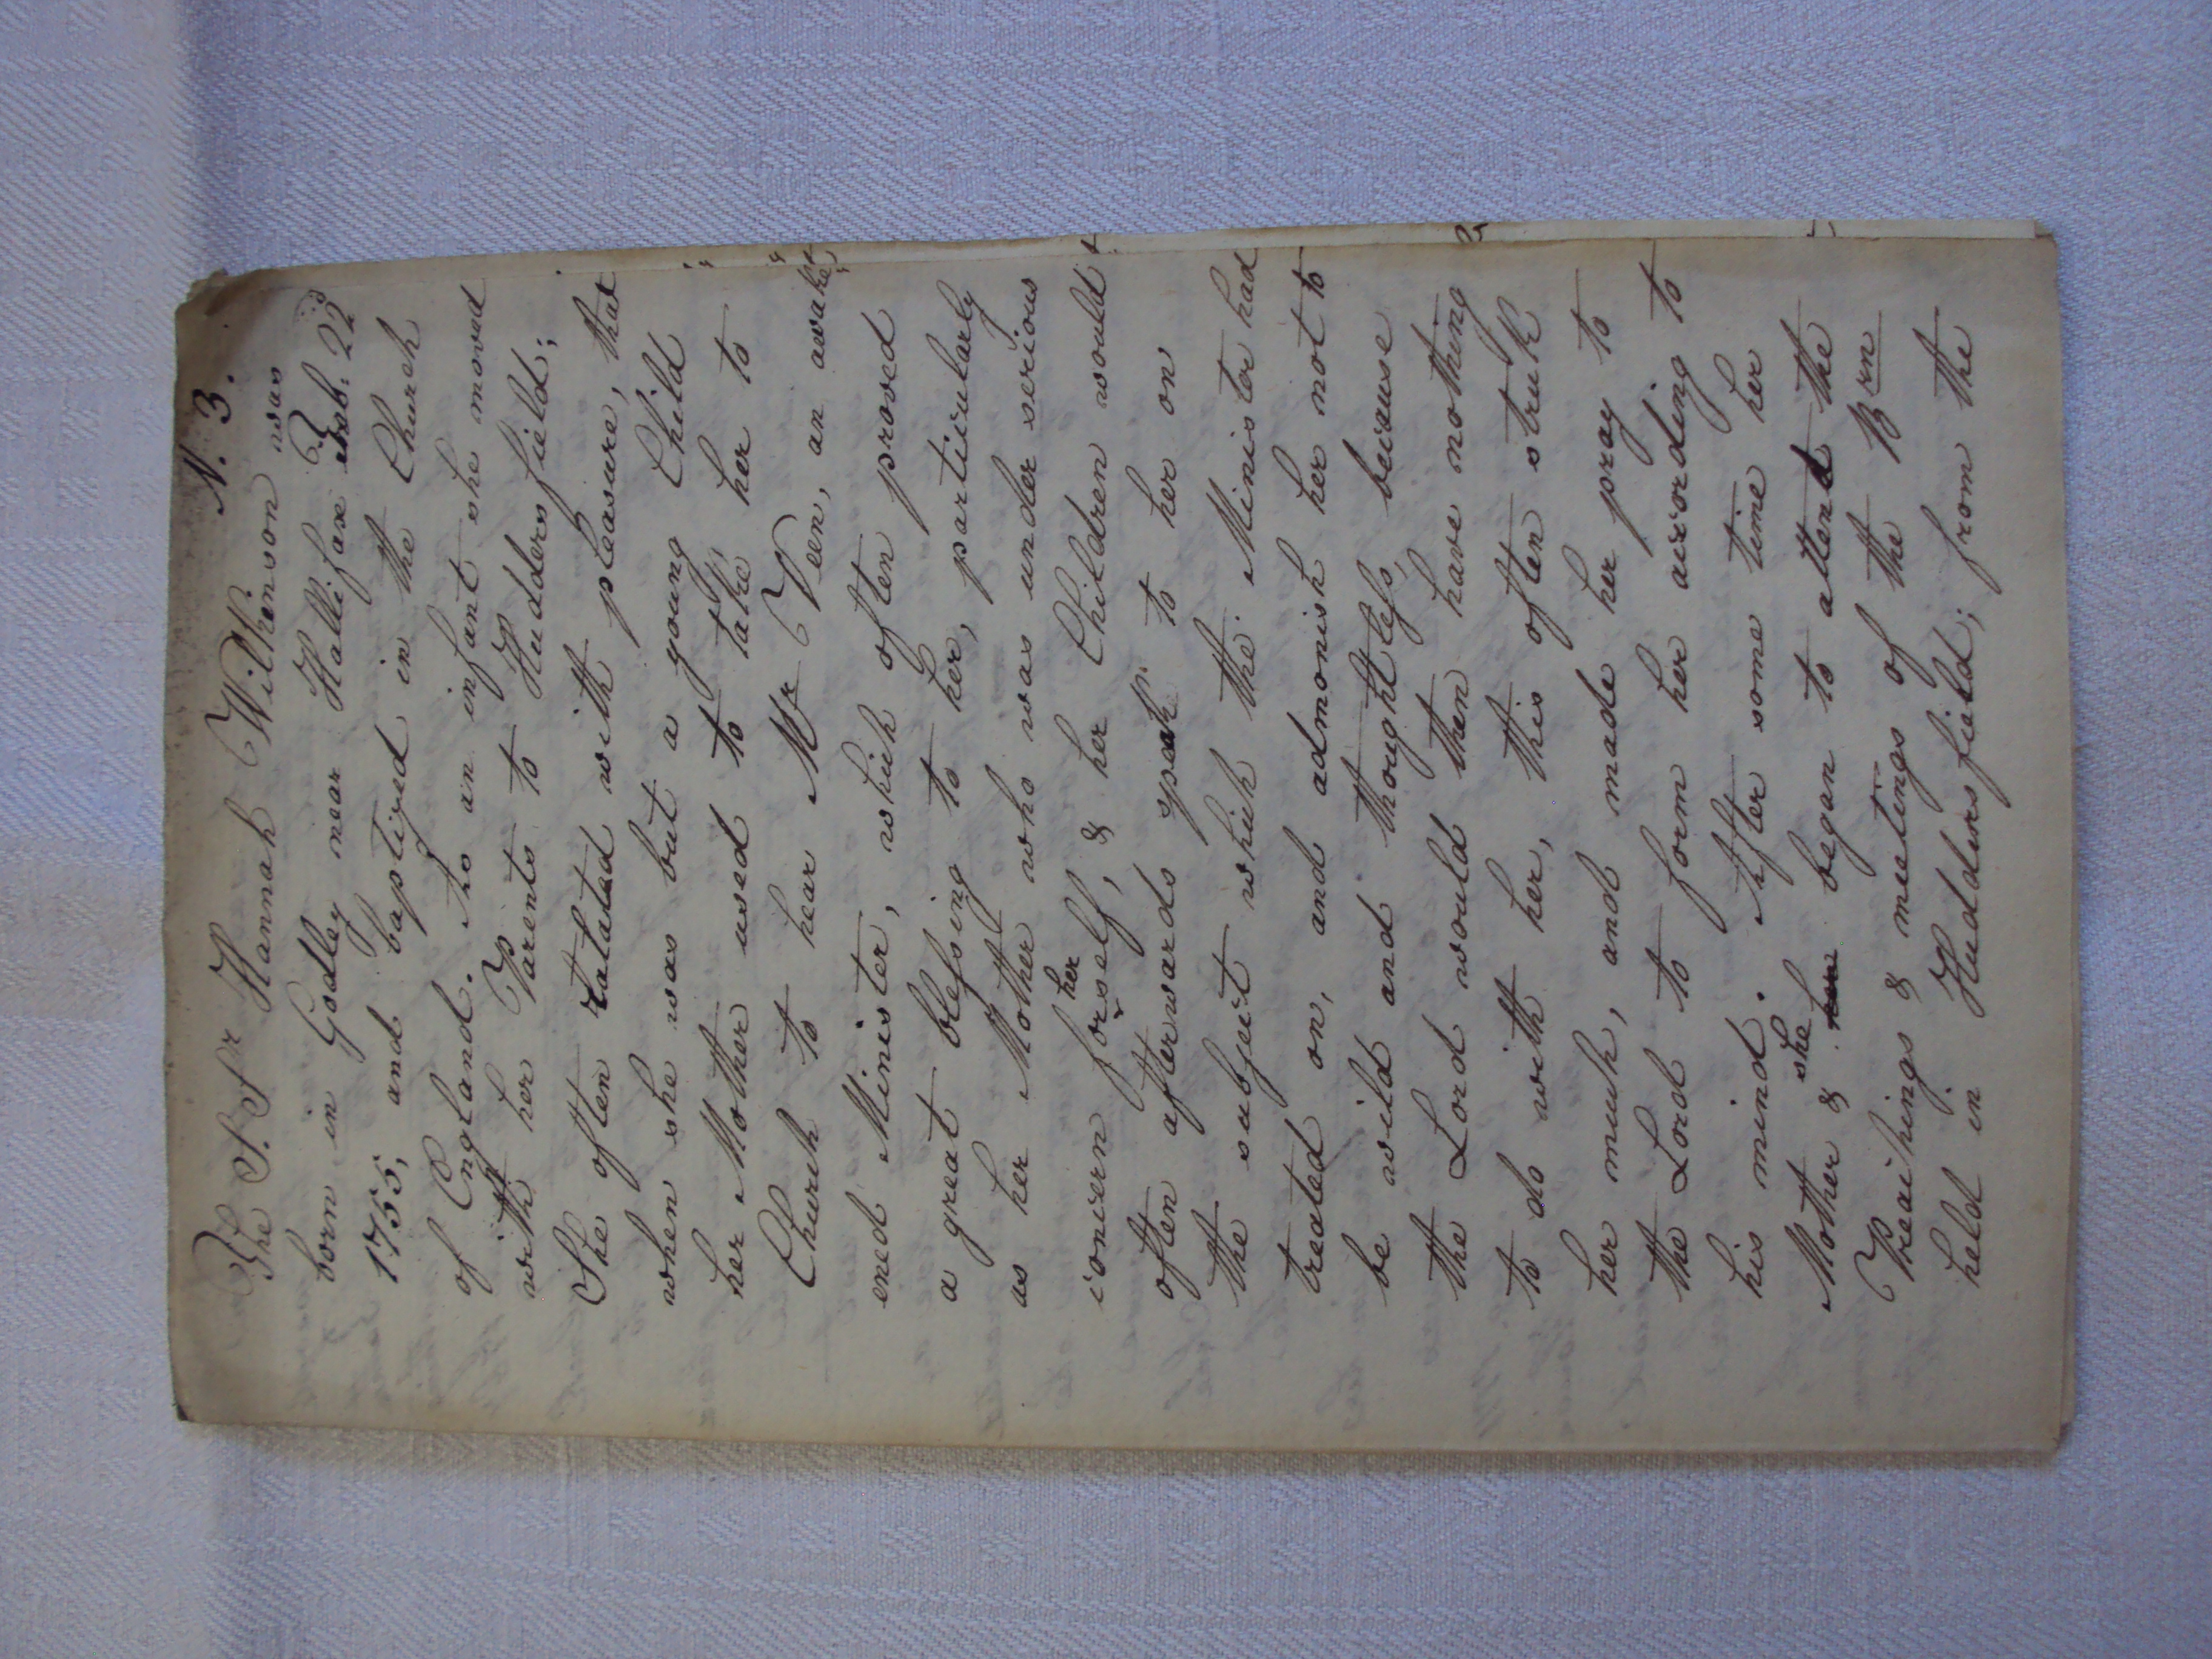 N. 3.
The S. Sr Hannah Wilkinson was
born in Godley near Hallifax Feb: 22d
1755, and baptized in the Church
of England. As an infant she moved
with her Parents to Huddersfield;
She often ralated with pleasure, that
when she was but a young Child
her Mother used to take her to
Church to hear Mr Veen, an awak
ened Minister, which often proved
a great blessing to her, particularly
as her Mother who was under serious
concern for her self, & her Children would
often afterwards speak to her on
the subject which the Minister had
treated on, and admonish her not to
be wild and thoughtless, because
the Lord would then have nothing
to do with her, this often struk
her much, and made her pray to
the Lord to form her according to
his mind. After some time her
Mother & she her began to attend the
Preachings & meetings of the Brn
held in Huddersfield; from the